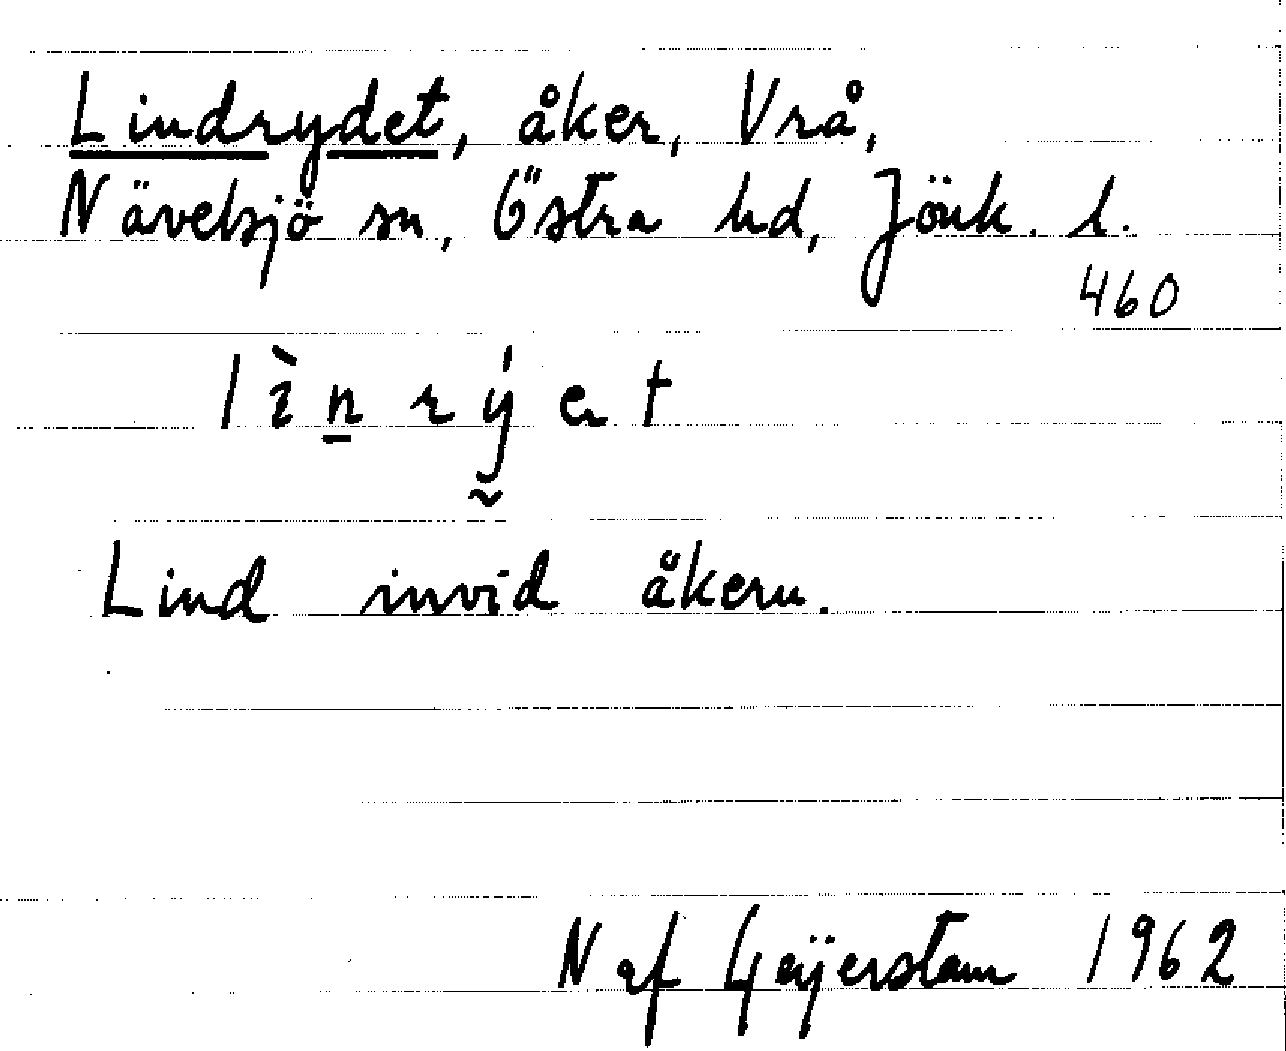 Lindrydet, åker, Vrå,
Nävelsjö sn, Östra hd, Jönk. l.
460
lìn̲rý̰et
Lind invid åkern.
N af Geijerstam 1962